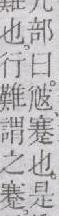 尢部曰。蹇也。是
難也。行難謂之蹇。